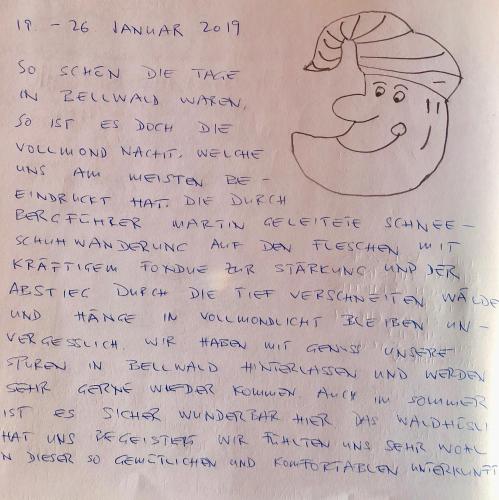 19. - 26 JANUAR 2019
SO SCHÖN DIE TAGE
IN BELLWALD WAREN,
SO IST ES DOCH DIE
VOLLMOND NACHT, WELCHE
UNS AM MEISTEN BE -
EINDRUCKT HAT. DIE DURCH
BERGFÜHRER MARTIN GELEITETE SCHNEE -
SCHUHWANDERUNG AUF DEN FLESCHEN MIT
KRÄFTIGEM FONDUE ZUR STÄRKUNG UND DER
ABSTIEG DURCH DIE TIEF VERSCHNEITEN WÄLDE
UND HÄNGE IN VOLLMONDLICHT BLEIBEN UN -
VERGESSLICH. WIR HABEN MIT GENUSS UNSERE
SPUREN IN BELLWALD HINTERLASSEN UND WERDEN
SEHR GERNE WIEDER KOMMEN. AUCH IM SOMMER
IST ES SICHER WUNDERBAR HIER. DAS WALDHÜSLI
HAT UNS BEGEISTERT. WIR FÜHLTEN UNS SEHR WOHL
N DIESER SO GEMÜTLICHEN UND KOMFORTABLEN UNTERKUNFT